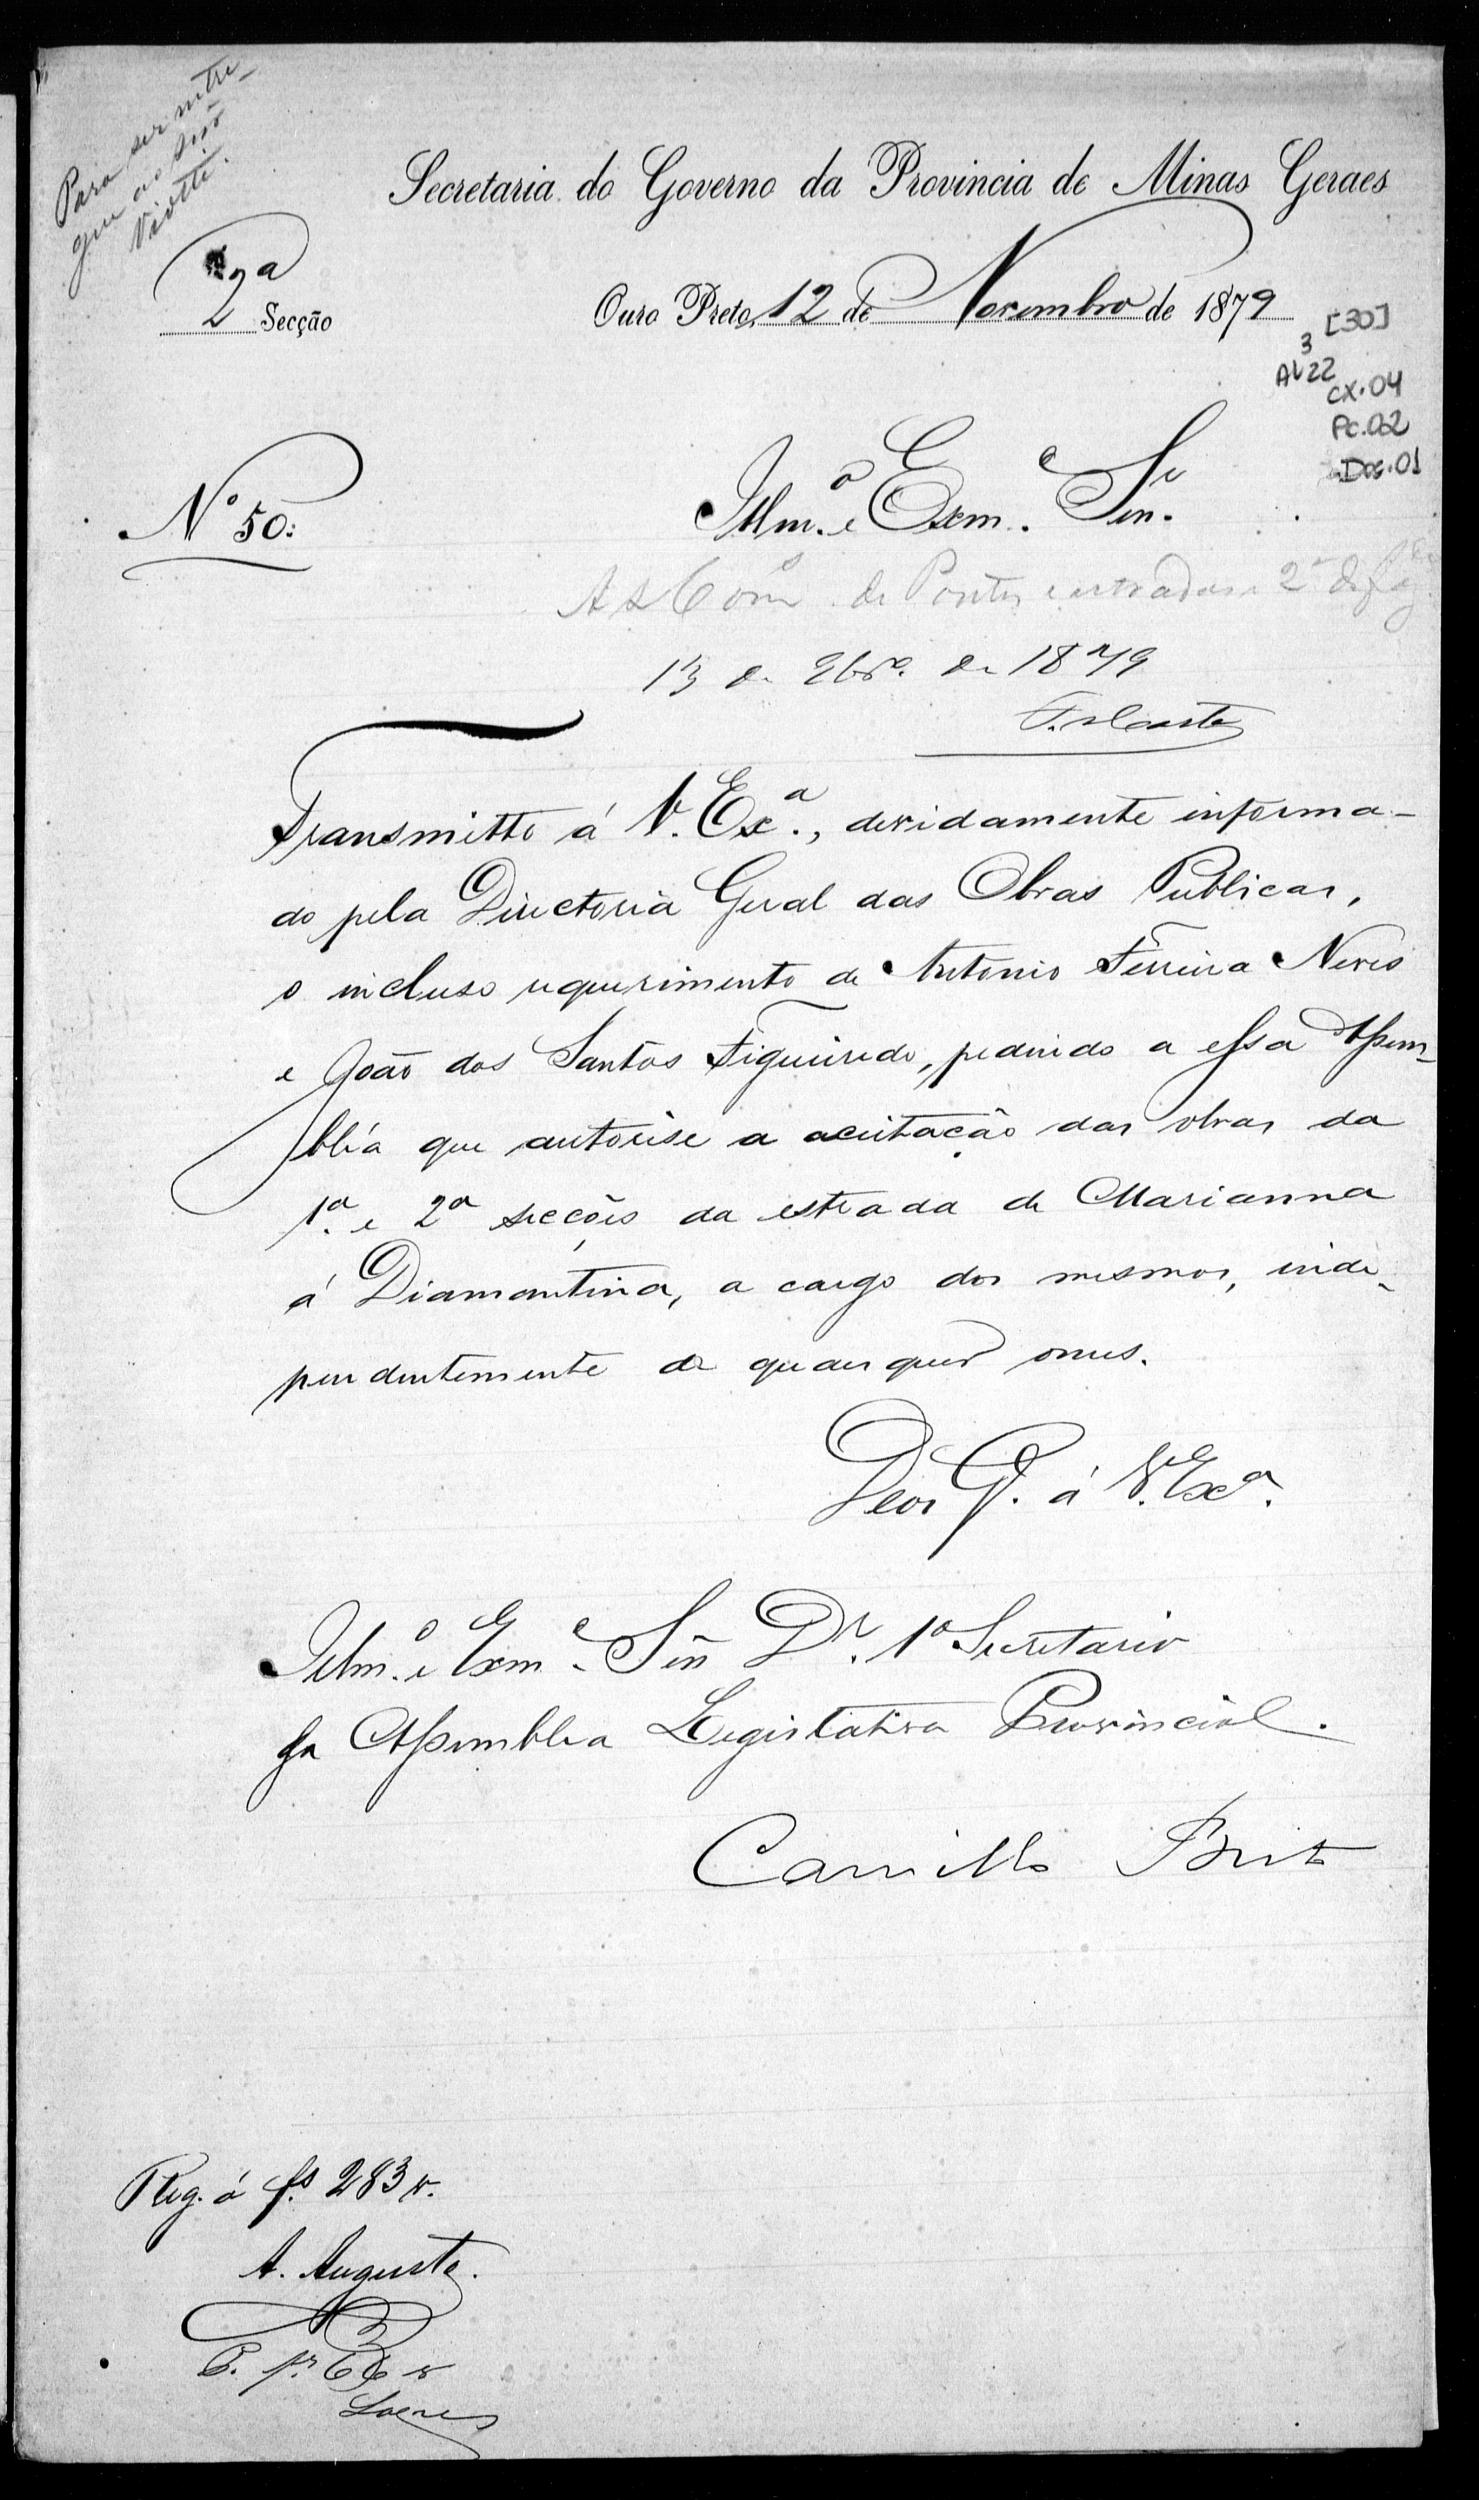 Para ser entre-
gue ao Snr
Viotti.
Secretaria do Governo da Provincia de Minas Geraes
2ª Secção
Ouro Preto, 12 de Novembro de 1879
[30]
3
AL 22
CX.04
Pc.02
Doc.01
Nº 50:
Illm.º e Exm.º Sen.r
Às Com.s de Pontes e estradas e 2ª de Faz.da
13 de 9br.º de 1879
Transmitto á V. Ex.ª, devidamente informa-
do pela Directoria Geral das Obras Publicas,
o incluso requerimento de Antonio Ferreira Neves
e João dos Santos Figueiredo, pedindo a essa Assem-
bléa que autorise a aceitação das obras da
1.ª e 2ª secções da estrada de Marianna
á Diamantina, a cargo dos mesmos, inde-
pendentemente de quaesquer onus.
Deos G. á V. Exª.
Illm.º e Exm.º Sñr Dr. 1º Secretario
da Assemblea Legislativa Provincial.
Camillo Brito
Reg. á fs. 283 v.
A. Augusto.